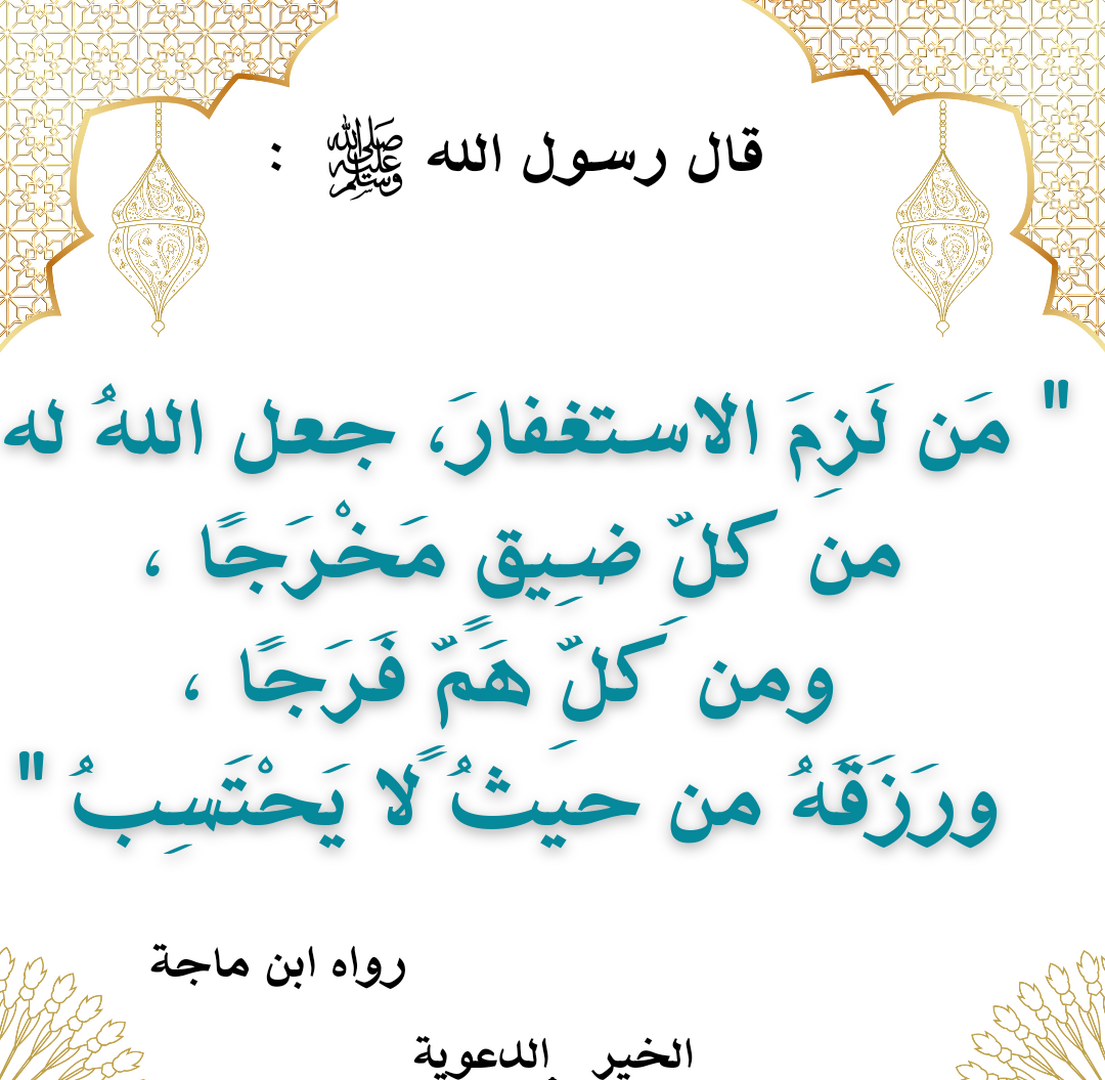 قال رسول الله ﷺ :
" مَن لَزِمَ الاستغفارَ، جعل اللهُ له
من كلّ ضِيق مَخْرَجًا ،
ومن كلّ هَمّ فَرَجًا ،
ورَزَقَهُ من حيثُ لا يَحْتَسِبُ "
رواه ابن ماجة
الخير الدعوية